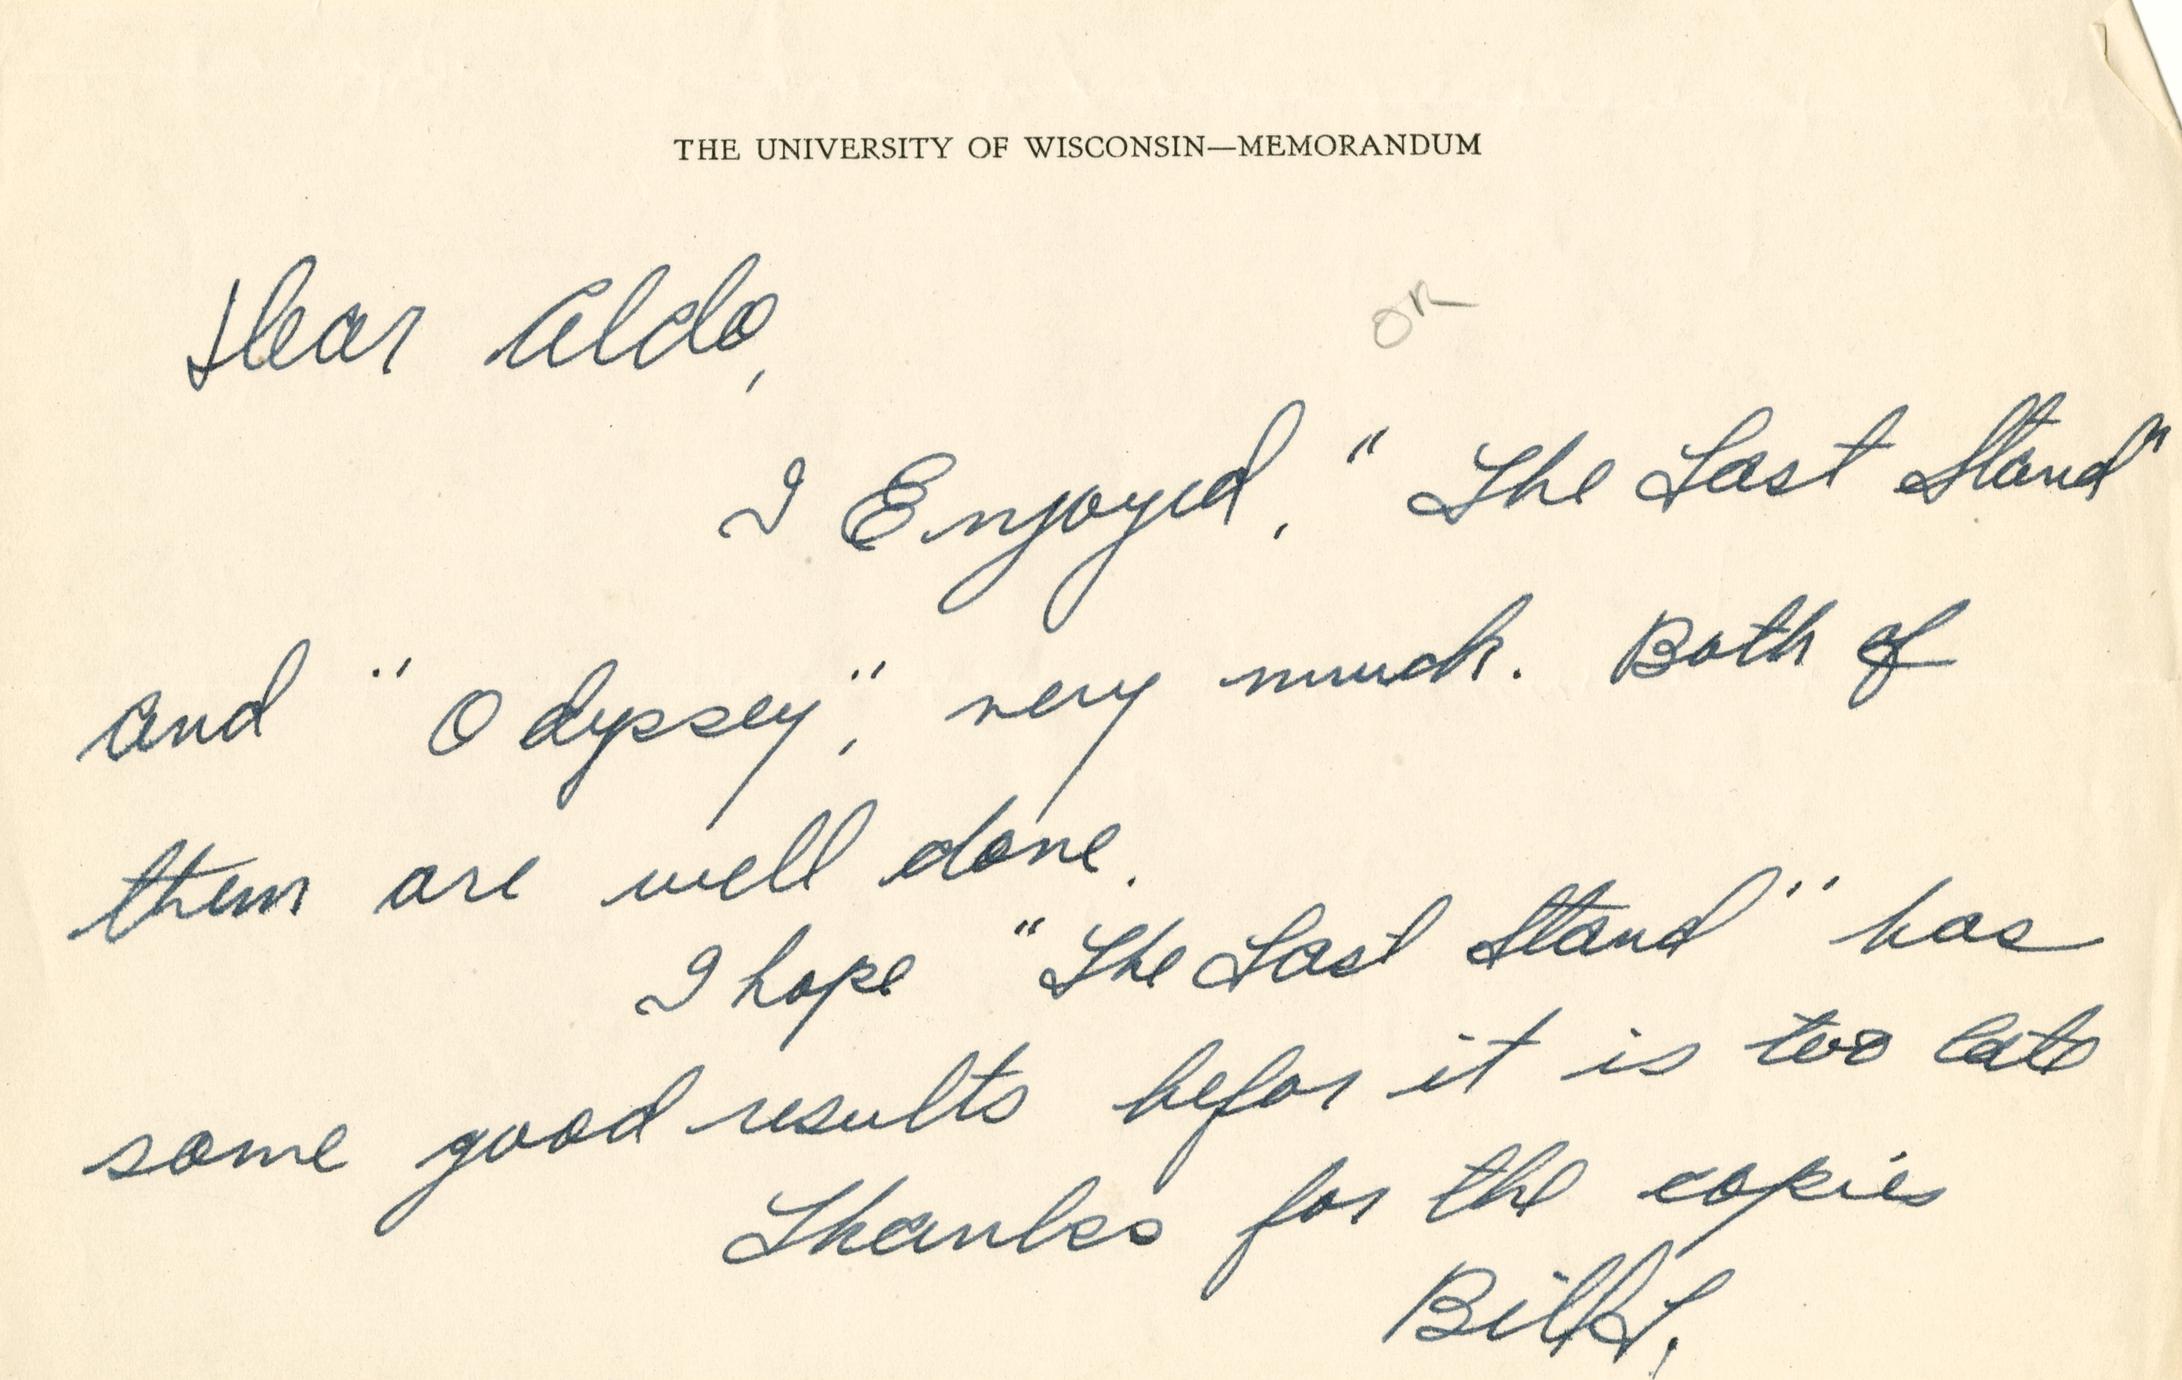 THE UNIVERSITY OF WISCONSIN—MEMORANDUM
Dear Aldo,
OK
I Enjoyed, "The Last Stand"
and "Odyssey", very much. Both of
them are well done.
I hope "The Last Stand" has
some good results befor it is too late
Thanks for the copies
Bill